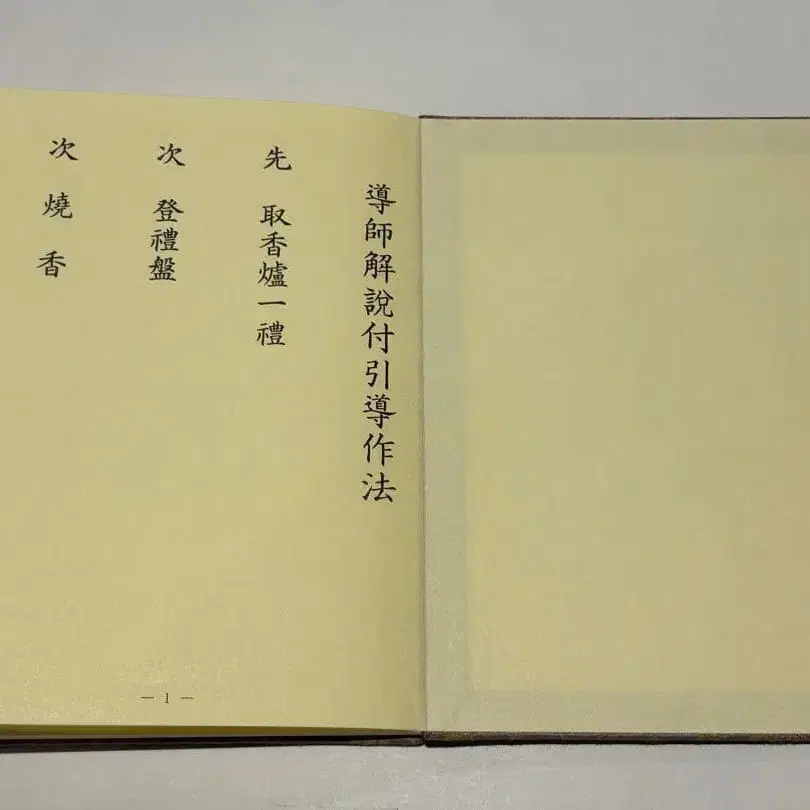 導師解說付引導作法
先 取香爐一禮
次 登禮盤
次 燒香
— 1 —